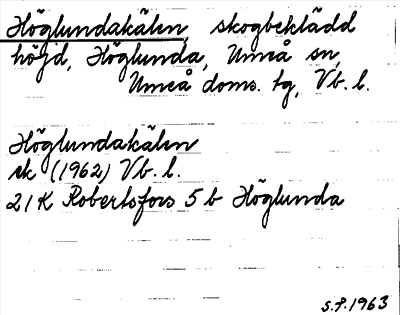 Höglundakälen, skogbeklädd
höjd, Höglunda, Umeå sn,
Umeå doms. tg, Vb. l.
Höglundakälen
sk (1962) Vb. l.
21K Robertsfors 5b Höglunda
S.P. 1963